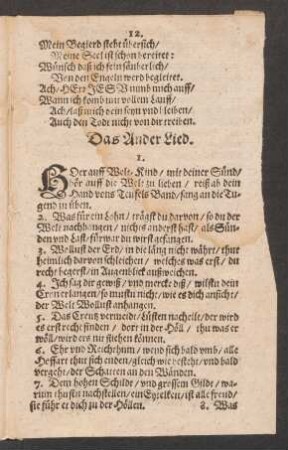 12.
Mein Begierd steht übersich/
Meine Seel ist schon bereitet:
Wünsch daß ich fein säuberlich/
Von den Engeln werd begleitet.
Ach HErr JESU nimb mich auff/
Wann ich komb inn vollem Lauff/
Ach/ laß mich dein seyn vnd bleiben/
Auch den Todt nicht von dir treiben.
Das Ander Lied.
1.
HOer auff Welt-Kind/ mit deiner Sünd/
hör auff die Welt zu lieben/ reiß ab dein
Hand vons Teufels Band/ fang an die Tu-
gend zu üben.
2. Was für ein Lohn/ trägst du darvon/ so du der
Welt nachhangen/ nichts anderst hast/ als Sün-
den vnd Last/ fürwar du wirst gefangen.
3. Wollust der Erd/ in die läng nicht währt/ thut
heimlich darvon schleichen/ welches was erst/ du
recht begerst/ in Augenblick außweichen.
4. Ich sag dir gewiß/ vnd mercke diß/ wilstu dein
Cron erlangen/ so mustu nicht/ wie es dich anficht/
der Welt Wollust anhangen.
5. Das Creutz vermeidt/ Lüsten nacheilt/ der wird
es erst recht finden/ dort in der Höll/ thu was er
wöll/ wird ers nie fliehen können.
6. Ehr vnd Reichthum/ wend sich bald vmb/ alle
Hoffart thut sich enden/ gleich wie besteht/ vnd bald
vergeht/ der Schatten an den Wänden.
7. Dem hohen Schildt/ vnd grossem Gilde/ wa-
rum thustu nachstellen/ ein Eytelkeit/ ist alle freud/
sie führ er dich zu der Höllen.
8. Was